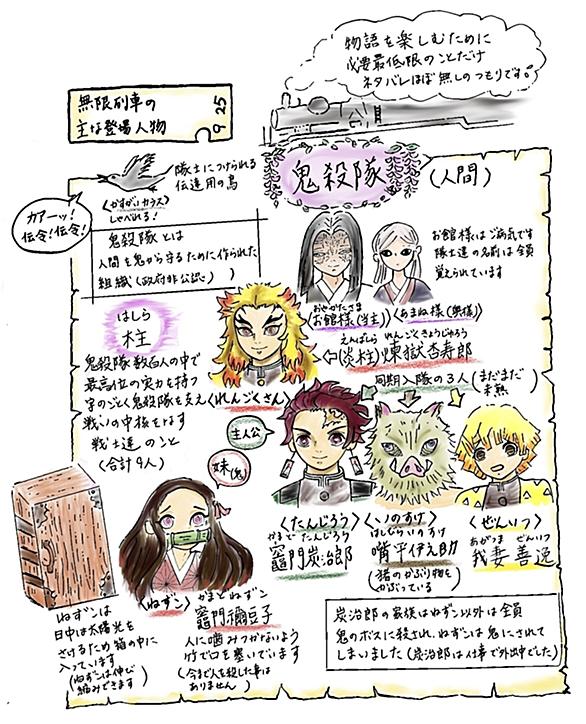 物語を楽しむために
必要最低限のことだけ
ネタバレほぼ無しのつもりです。
無限列車の
主な登場人物
9 25
鬼殺隊
(人間)
隊士につけられる
伝達用の烏
〈かすがいカラス〉
しゃべれる!
カアーッ!
伝令!伝令!
鬼殺隊とは
人間を鬼から守るために作られた
組織(政府非公認)
お館様はご病気です
隊士達の名前は全員
覚えられています
おやかたさま
〈お館様(当主)〉
〈あまね様(奥様)〉
はしら
柱
鬼殺隊数百人の中で
最高位の実力を持つ
字のごとく鬼殺隊を支え
戦いの中核をなす
戦士達のこと
(合計9人)
えんばしら れんごくきょうじゅろう
(炎柱)煉獄杏寿郎
〈れんごくさん〉
同期入隊の3人(まだまだ未熟)
主人公
妹(鬼)
〈たんじろう〉
かまどたんじろう
竈門炭治郎
〈いのすけ〉
はしびらいのすけ
嘴平伊之助
(猪のかぶり物を
かぶっている)
〈ぜんいつ〉
あがつま ぜんいつ
我妻善逸
〈ねずこ〉
かまどねずこ
竈門禰豆子
人に噛みつかないよう
竹で口を塞いでいます
(今まで人を殺した事は
ありません)
ねずこは
日中は太陽光を
さけるため箱の中に
入っています
(ねずこは伸び
縮みできます)
炭治郎の家族はねずこ以外は全員
鬼のボスに殺され、ねずこは鬼にされて
しまいました(炭治郎は仕事で外出中でした)